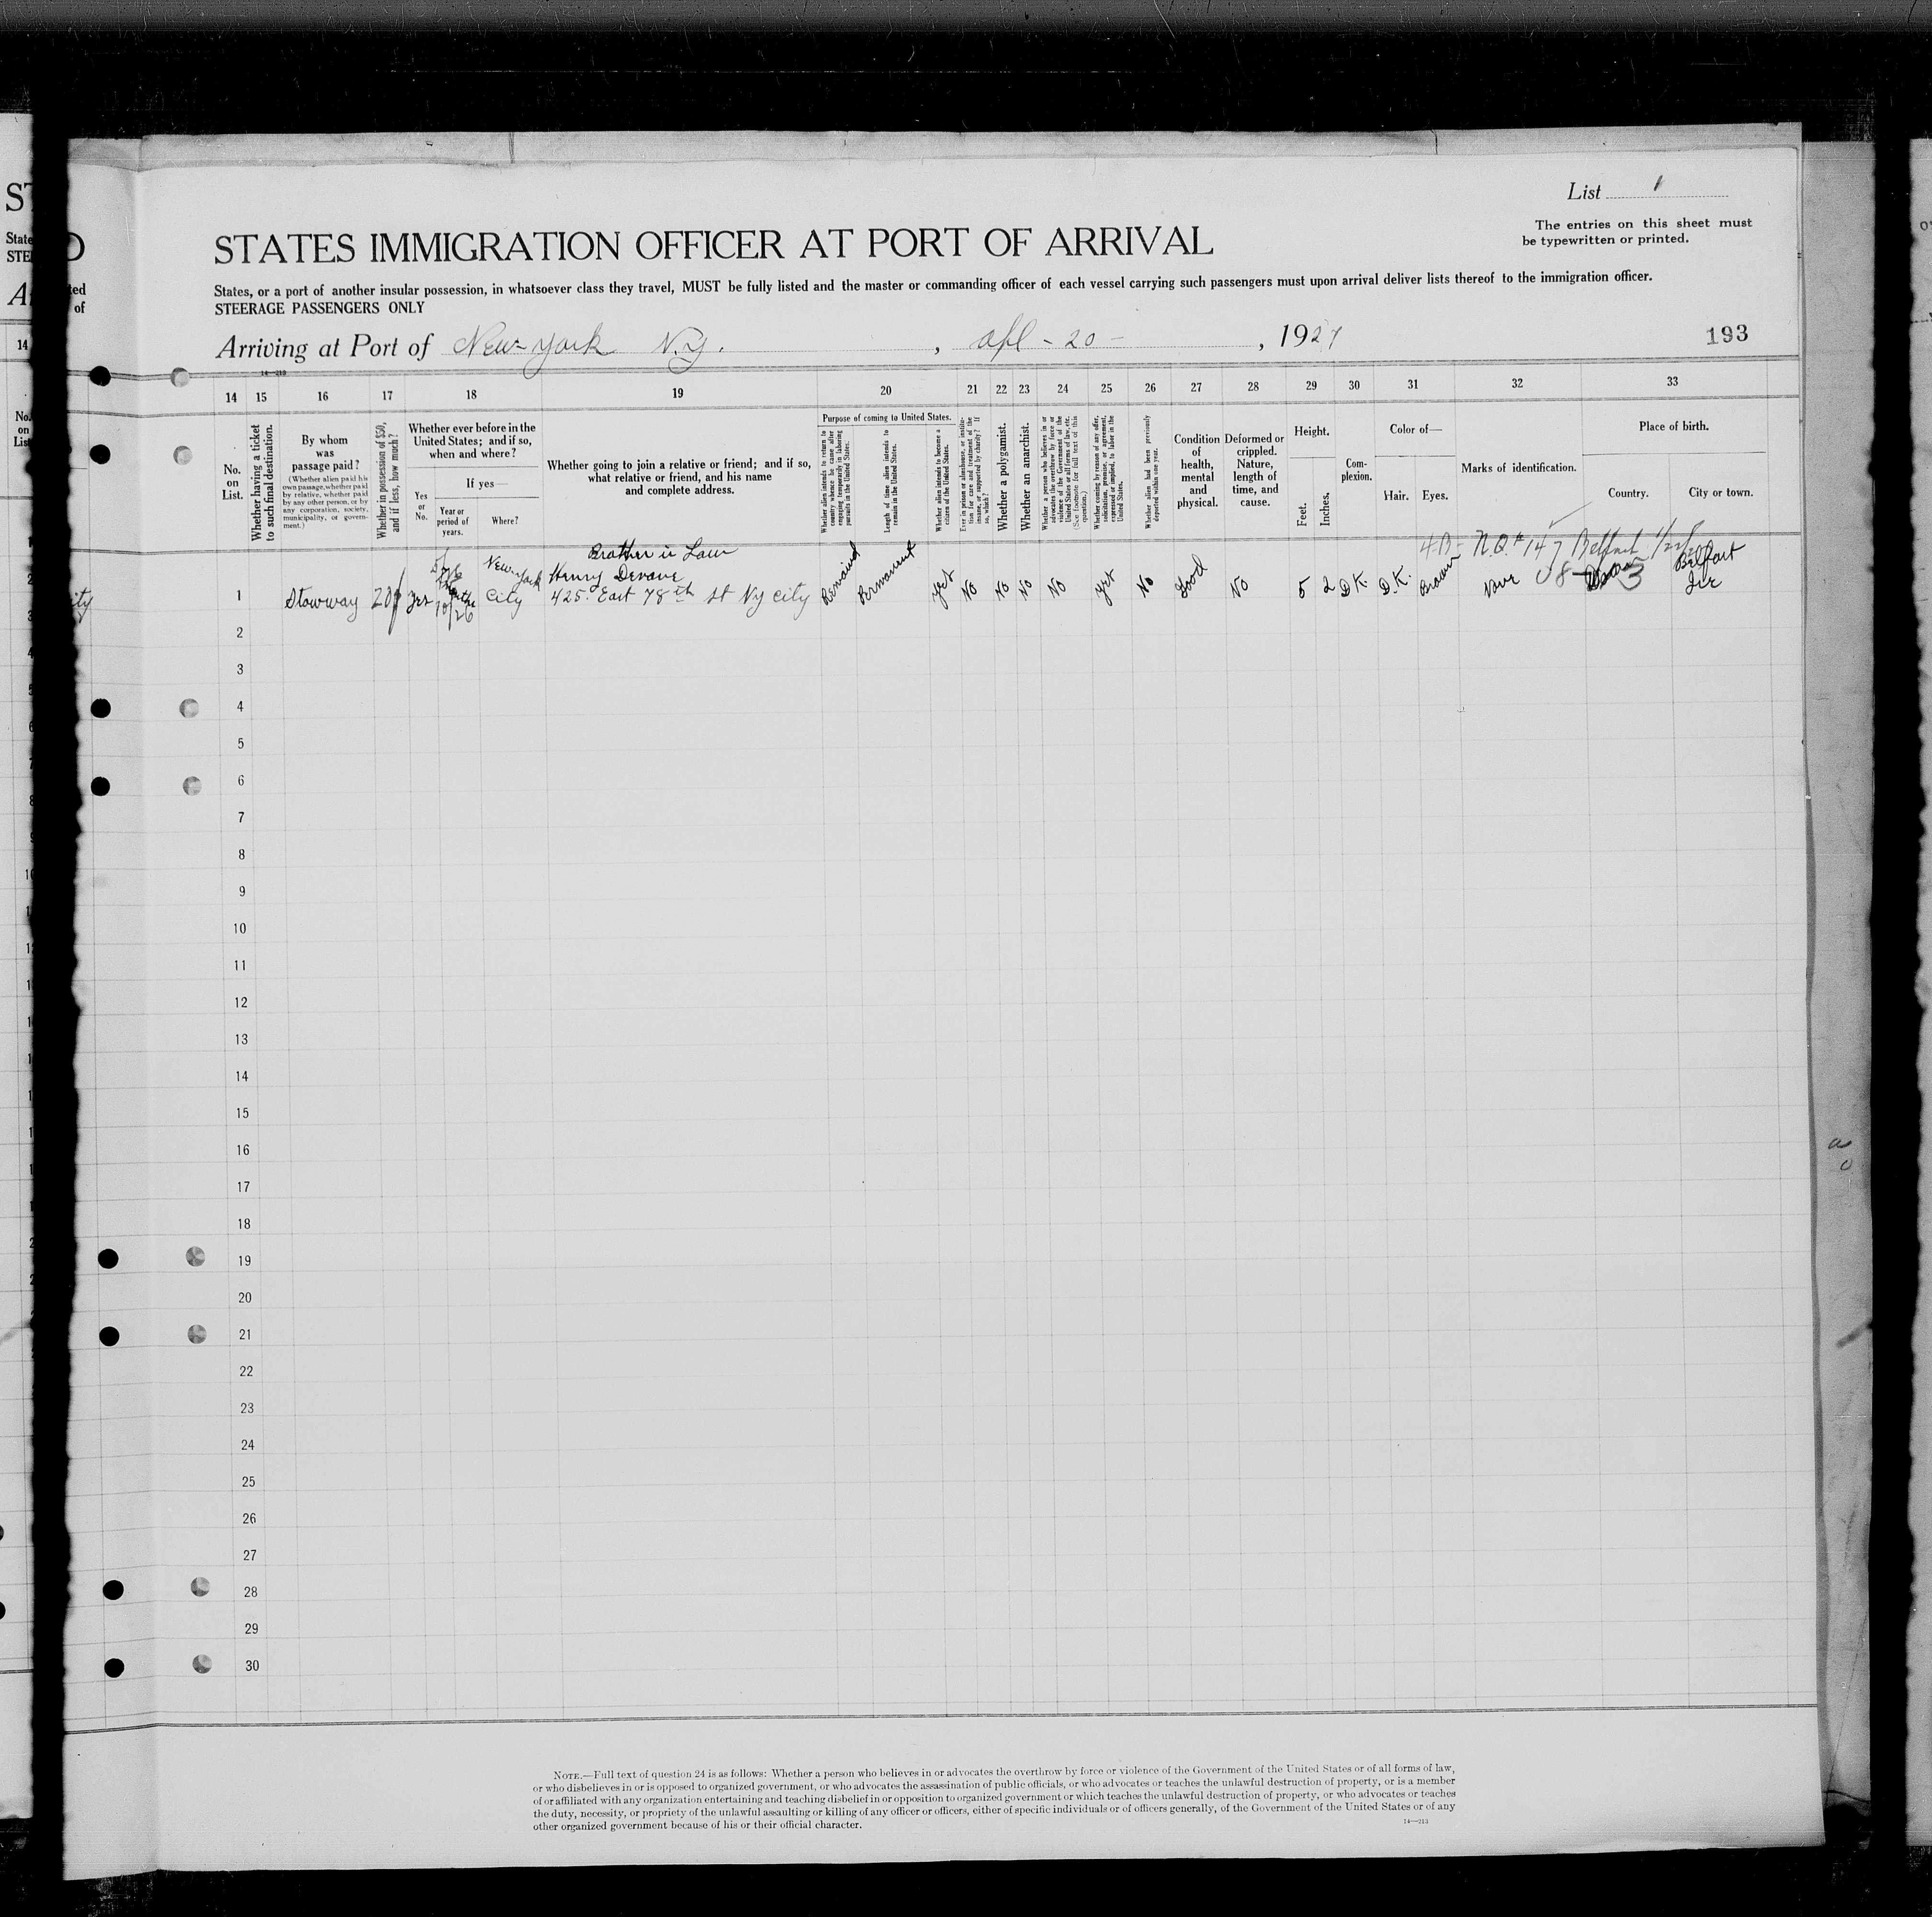 List 1
The entries on this sheet must
be typewritten or printed.
STATES IMMIGRATION OFFICER AT PORT OF ARRIVAL
States, or a port of another insular possession, in whatsoever class they travel, MUST be fully listed and the master or commanding officer of each vessel carrying such passengers must upon arrival deliver lists thereof to the immigration officer.
STEERAGE PASSENGERS ONLY
Arriving at Port of New York N.Y. , Apl - 20 - , 1927
193
14—213
14 15 16 17 18 19 20 21 22 23 24 25 26 27 28 29 30 31 32 33
No. on List.
Whether having a ticket to such final destination.
By whom was passage paid?
(Whether alien paid his own passage, whether paid by relative, whether paid by any other person, or by any corporation, society, municipality, or government.)
Whether in possession of $50, and if less, how much?
Whether ever before in the United States; and if so, when and where?
Yes or No.
If yes—
Year or period of years.
Where?
Whether going to join a relative or friend; and if so, what relative or friend, and his name and complete address.
Purpose of coming to United States.
Whether alien intends to return to country whence he came after engaging temporarily in laboring pursuits in the United States.
Length of time alien intends to remain in the United States.
Whether alien intends to become a citizen of the United States.
Ever in prison or almshouse, or institution for care and treatment of the insane, or supported by charity? If so, which?
Whether a polygamist.
Whether an anarchist.
Whether a person who believes in or advocates the overthrow by force or violence of the Government of the United States or all forms of law, etc. (See footnote for full text of this question.)
Whether coming by reason of any offer, solicitation, promise, or agreement, expressed or implied, to labor in the United States.
Whether alien had been previously deported within one year.
Condition of health, mental and physical.
Deformed or crippled. Nature, length of time, and cause.
Height.
Feet.
Inches.
Complexion.
Color of—
Hair.
Eyes.
Marks of identification.
Place of birth.
Country.
City or town.
N.Q. # 147 Belfast
Brother in Law
1 Stowway 20 yes 10/26 New York City Henry Devane 425 East 78th St Ny city Remaind Permanent Yes No No No No Yes No Good No 5 2 DK. D.K. Brown None Belfast Ire
2
3
4
5
6
7
8
9
10
11
12
13
14
15
16
17
18
19
20
21
22
23
24
25
26
27
28
29
30
NOTE.—Full text of question 24 is as follows: Whether a person who believes in or advocates the overthrow by force or violence of the Government of the United States or of all forms of law,
or who disbelieves in or is opposed to organized government, or who advocates the assassination of public officials, or who advocates or teaches the unlawful destruction of property, or is a member
of or affiliated with any organization entertaining and teaching disbelief in or opposition to organized government or which teaches the unlawful destruction of property, or who advocates or teaches
the duty, necessity, or propriety of the unlawful assaulting or killing of any officer or officers, either of specific individuals or of officers generally, of the Government of the United States or of any
other organized government because of his or their official character.
14—213